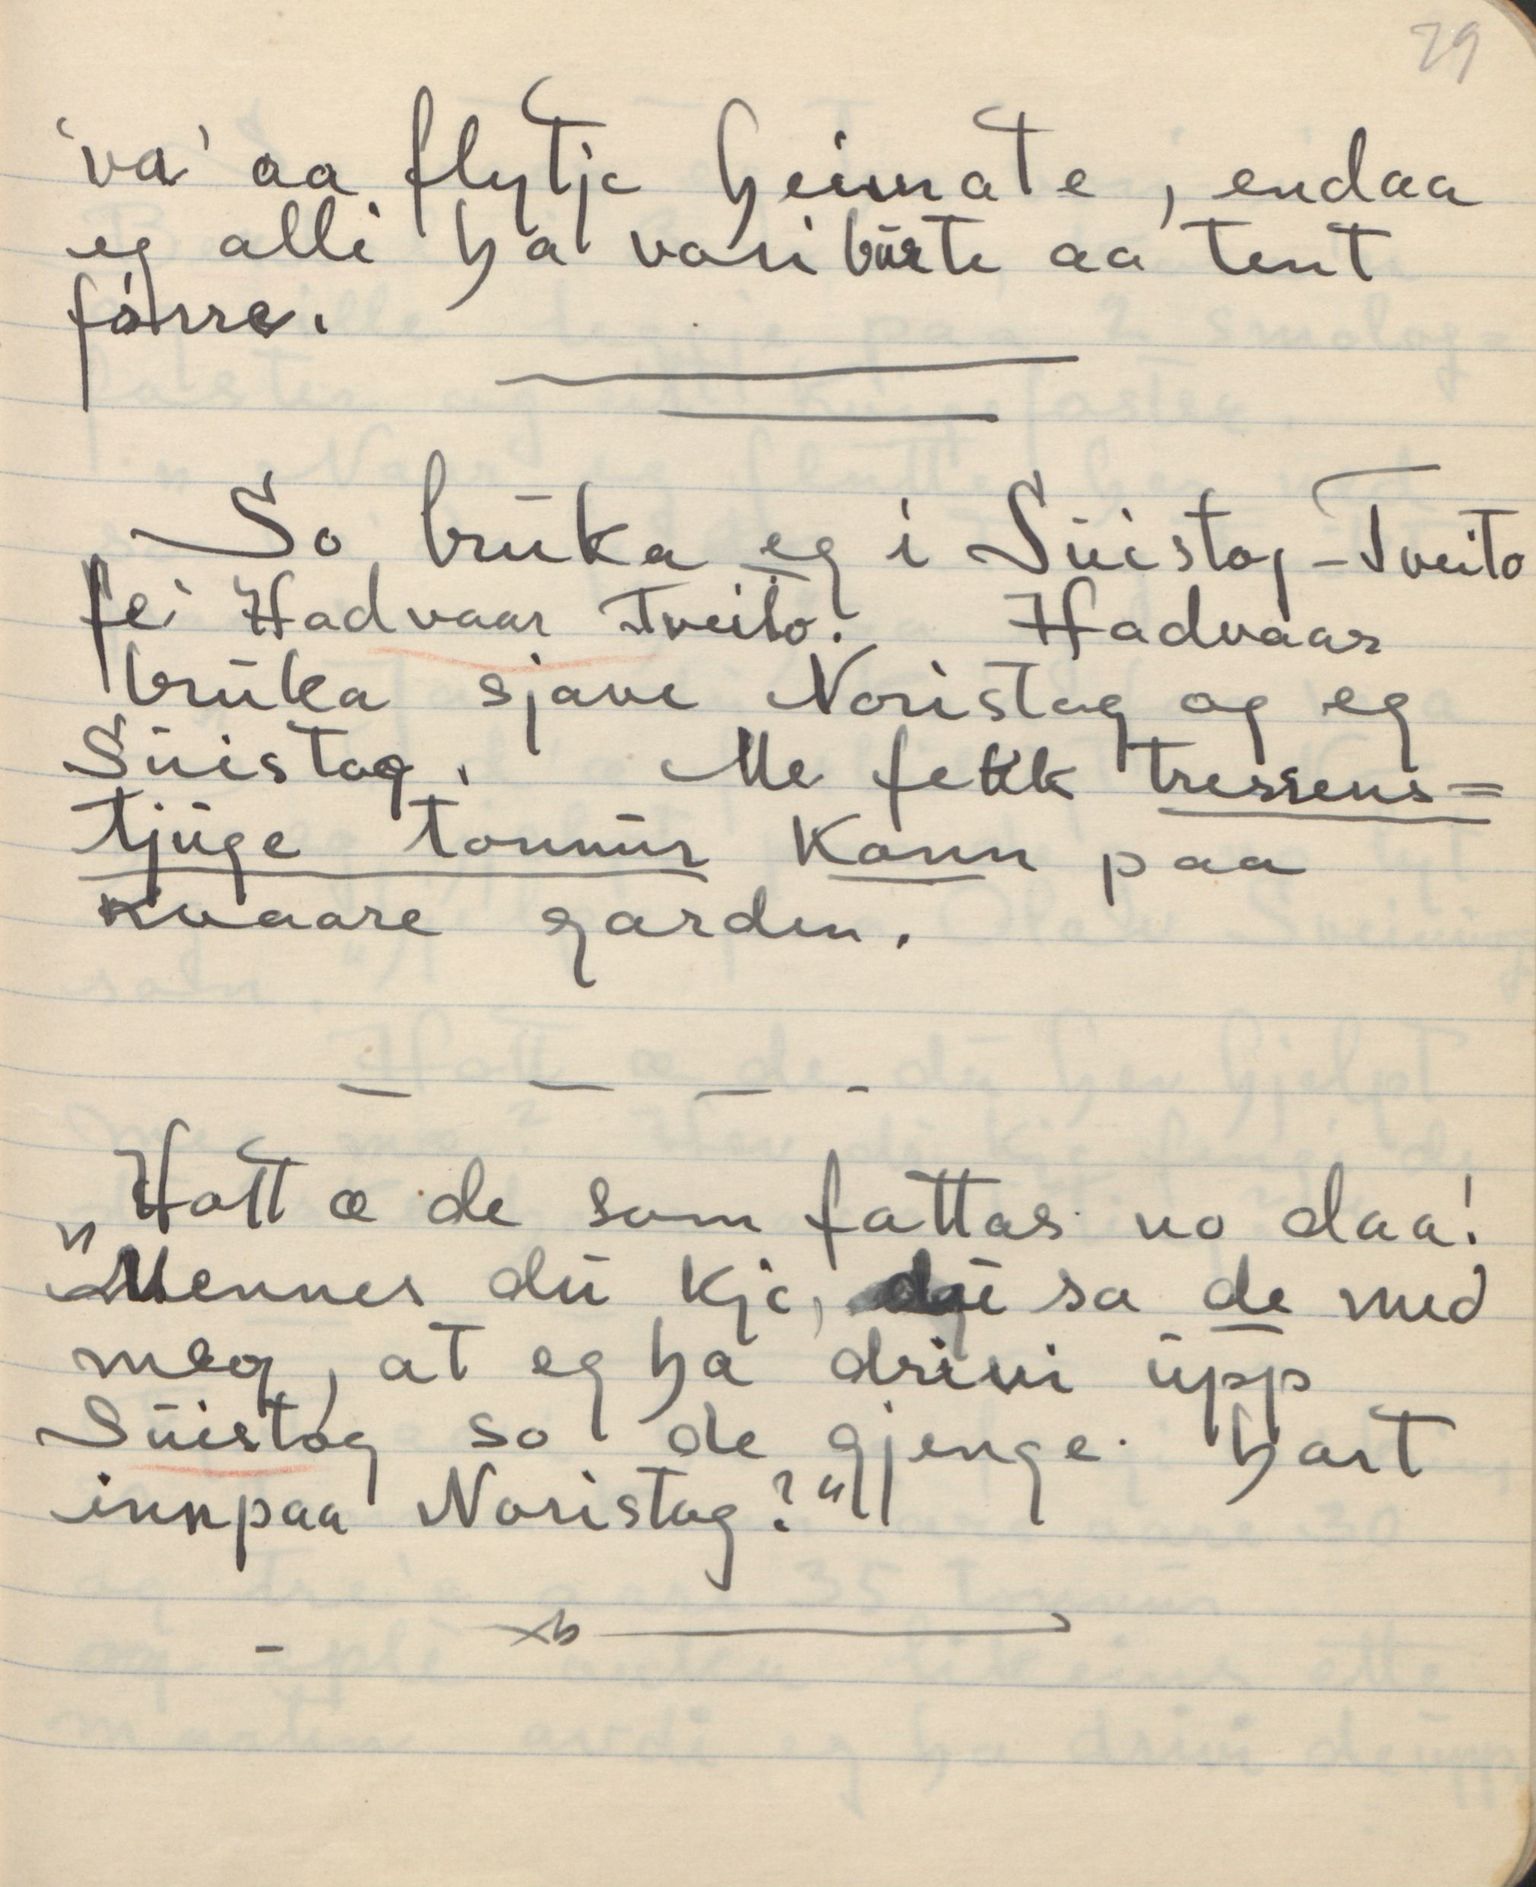 29
'va' aa flytje heimate, endaa
eg alli ha vori bürte aa tent
fórre.
So brüka eg i Süistog-Tveito
fei Hadvaar Tveito. Hadvaar
brüka sjave Noristog og eg
Süistog. Me fekk tressens=
tjüge tonnür konn paa
kvaare garden.
Hott æ de som fattas no daa!
"Mennes dü kje, sa de med
meg, at eg ha drivi üpp
Süistog so de gjenge hart
innpaa Noristog?"